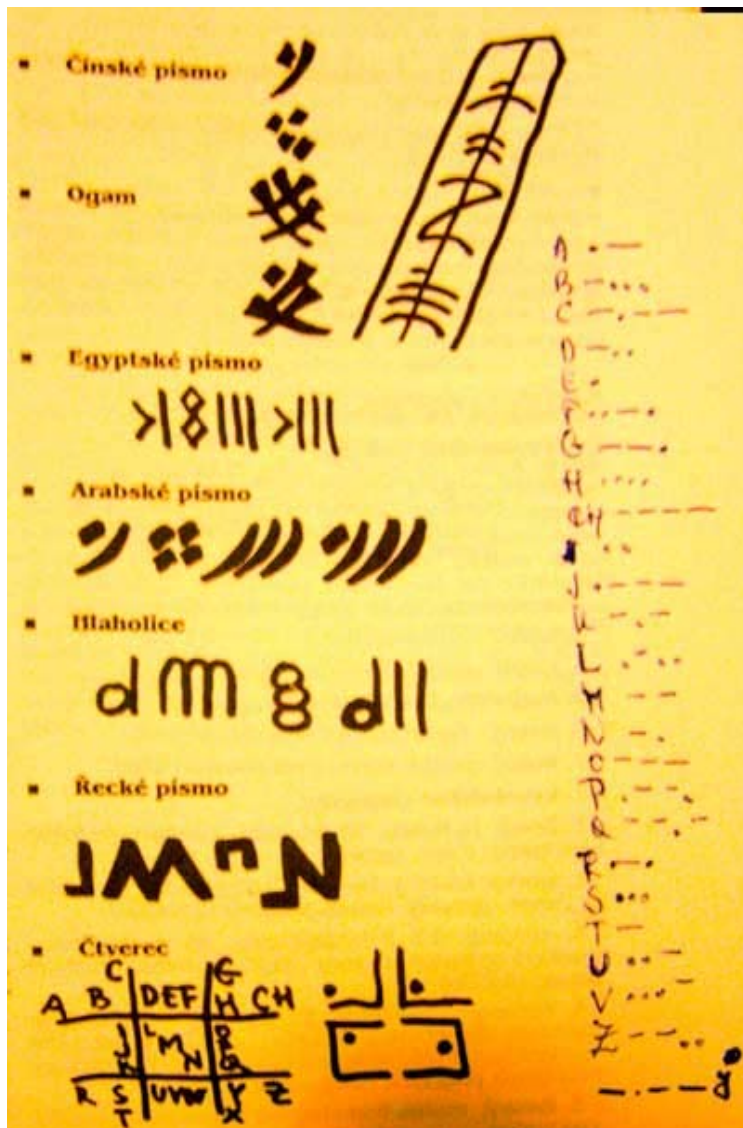 Čínské písmo
Ogam
Egyptské písmo
Arabské písmo
Hlaholice
Řecké písmo
Čtverec
A B C DEF G H CH
J K L M N
R S T UVW X Y Z
A .-
B -...
C
D -..
E .
F ..-.
G
H ....
CH ----
..
J .---
L .-..
M --
N -.
O ---
P .--.
R .-.
S ...
T -
U ..-
V ...-
Z --..
-.-- Y